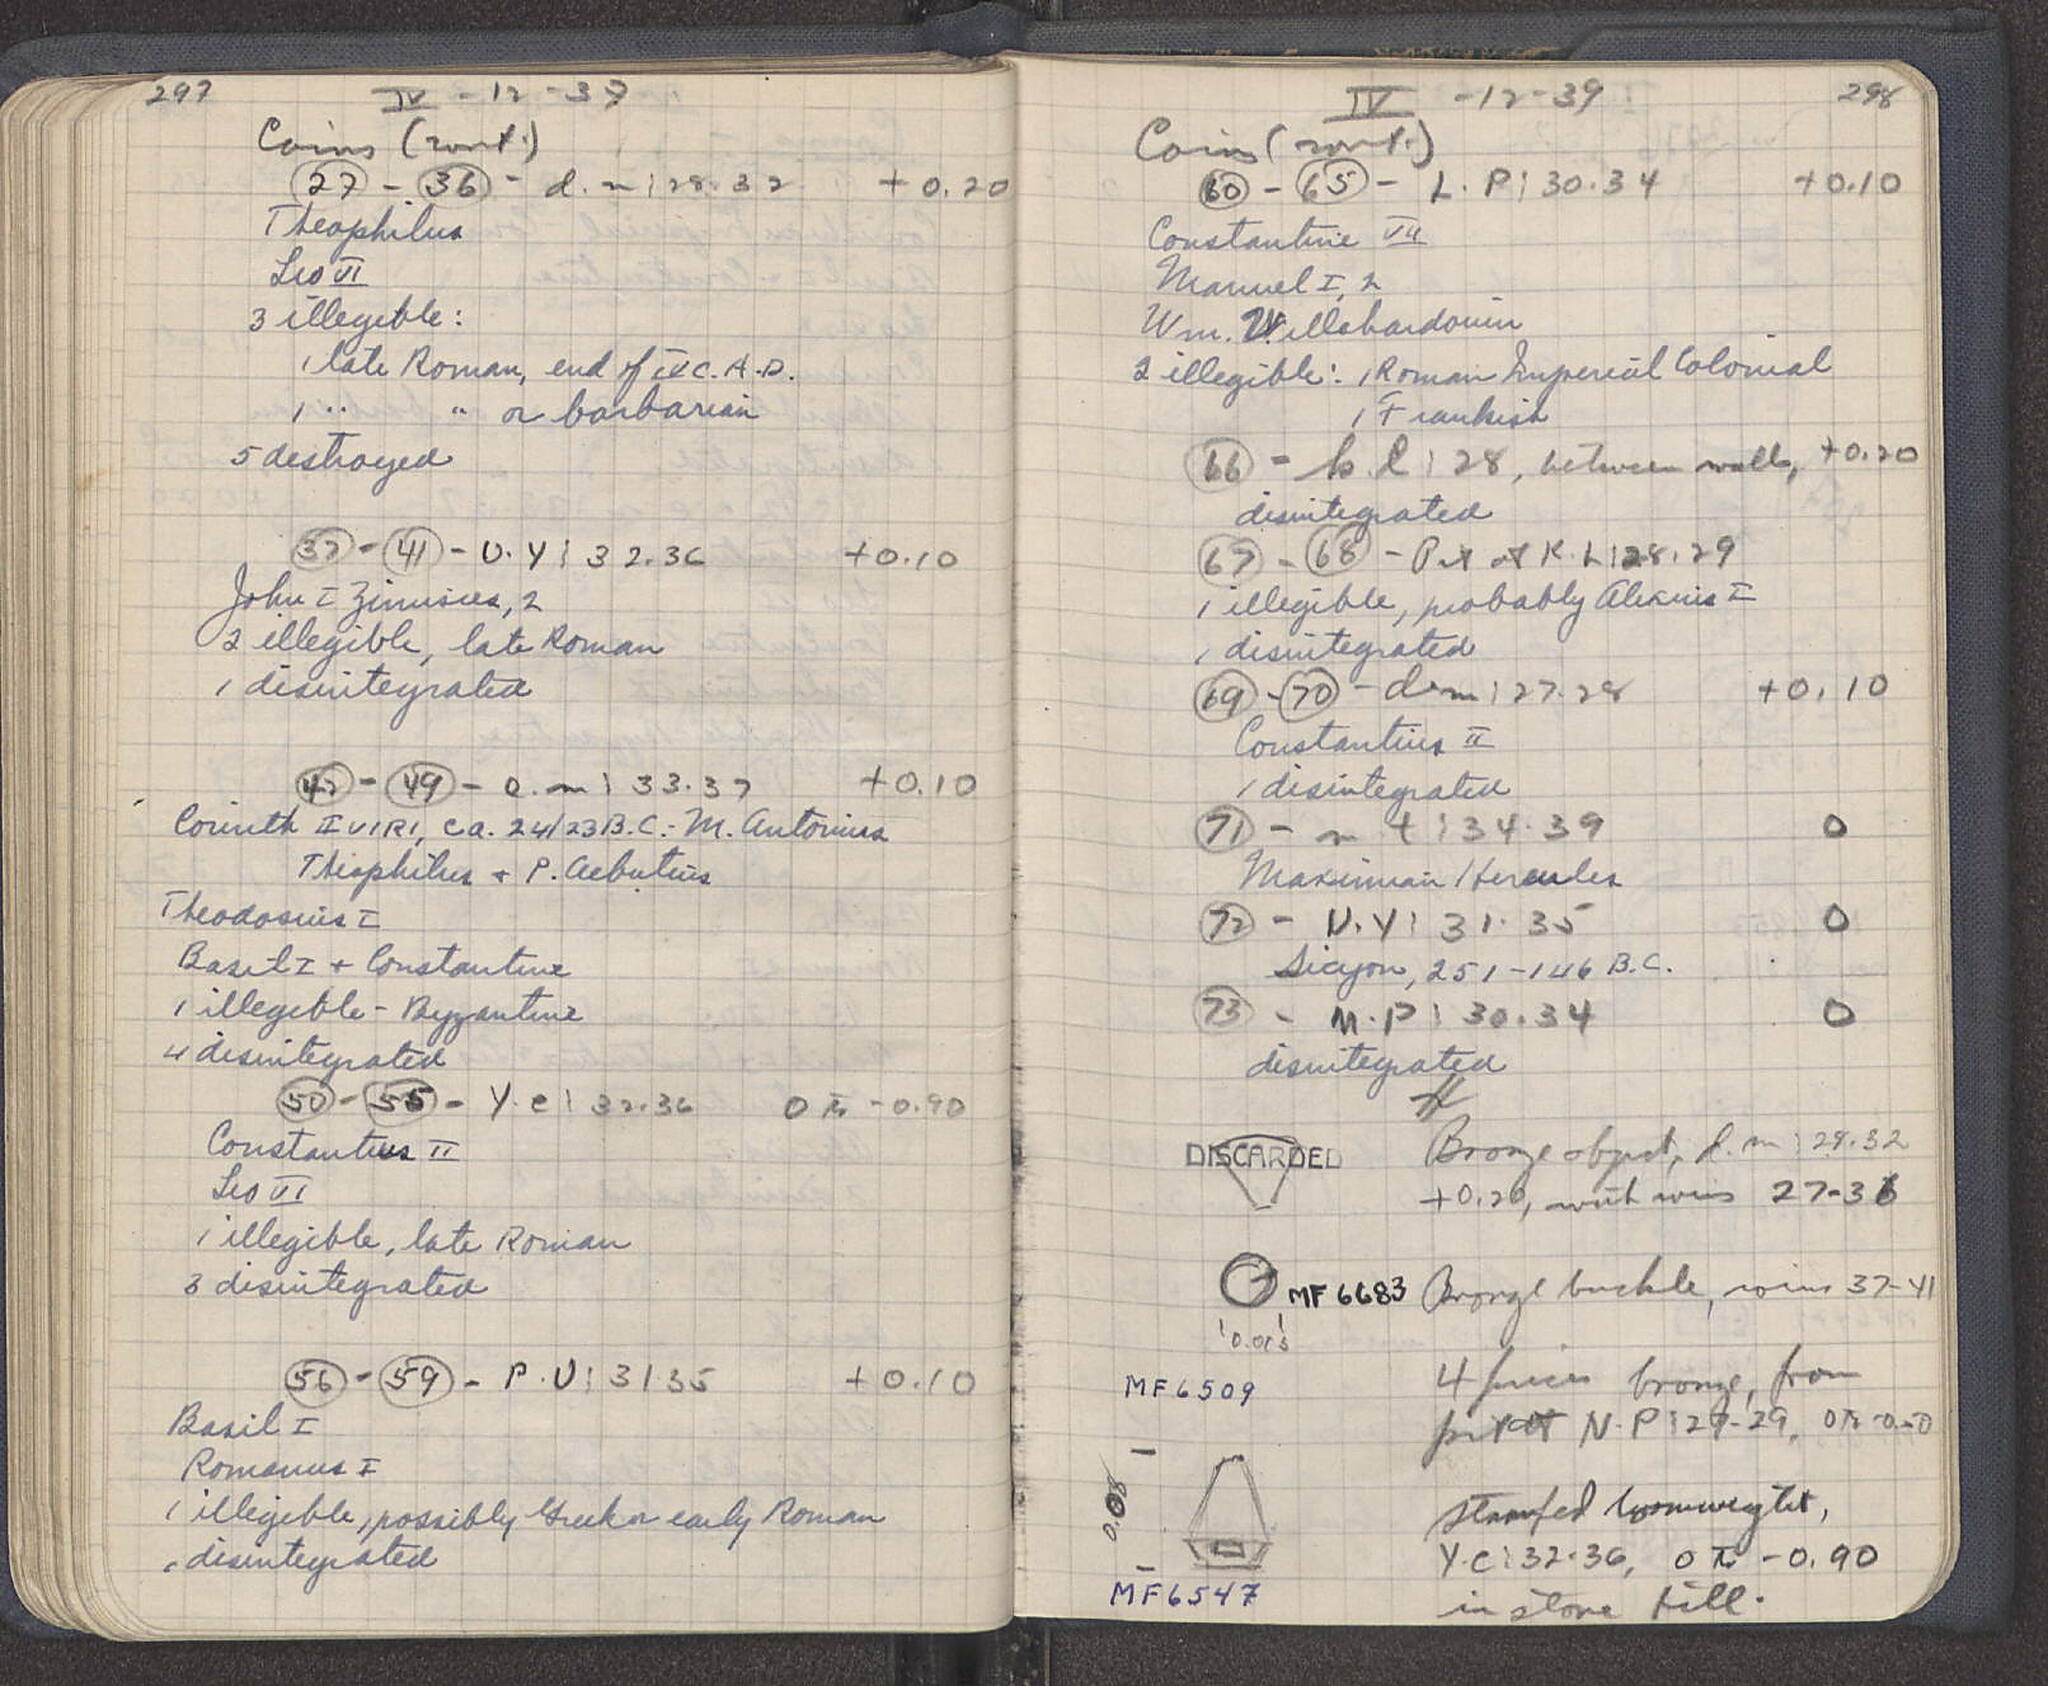 297
IV - 12 - 39
Coins (cont.)
27 - 36 - d. m : 28.32 +0.20
Theophilus
Leo VI
3 illegible:
1 late Roman, end of IV C. A.D.
1 " " or barbarian
5 destroyed
37 - 41 - U. Y : 32.36 +0.10
John I Zimisces, 2
2 illegible, late Roman
1 disintegrated
42 - 49 - O. m : 33.37 +0.10
Corinth II VIRI, ca. 24/23 B.C. - M. Antonius
Theophilus + P. Aebutius
Theodosius I
Basil I + Constantine
1 illegible - Byzantine
4 disintegrated
50 - 55 - Y. C : 32.36 0 to -0.90
Constantius II
Leo VI
1 illegible, late Roman
3 disintegrated
56 - 59 - P. U : 31.35 +0.10
Basil I
Romanus I
1 illegible, possibly Greek or early Roman
1 disintegrated
298
IV - 12 - 39
Coins (cont.)
60 - 65 - L. P : 30.34 +0.10
Constantine VII
Manuel I, 2
Wm. Villehardouin
2 illegible: 1 Roman Imperial Colonial
1 Frankish
66 - k. l : 28, between walls, +0.20
disintegrated
67 - 68 - Pit at K. L : 28.29
1 illegible, probably Alexius I
1 disintegrated
69 - 70 - d-m : 27.28 +0.10
Constantius II
1 disintegrated
71 - m t : 34.39 0
Maximian Hercules
72 - U. Y : 31.35 0
Sicyon, 251-146 B.C.
73 - M. P : 30.34 0
disintegrated
DISCARDED
Bronze object, d. m : 28.32
+0.20, with coins 27-36
MF 6683 Bronze buckle, coins 37-41
0.013
MF 6509
4 pieces bronze, from
pit at N-P : 27-29, 0 to -0.50
0.08
stamped loomweight,
Y.C : 32.36, 0 to -0.90
in stone fill.
MF 6547